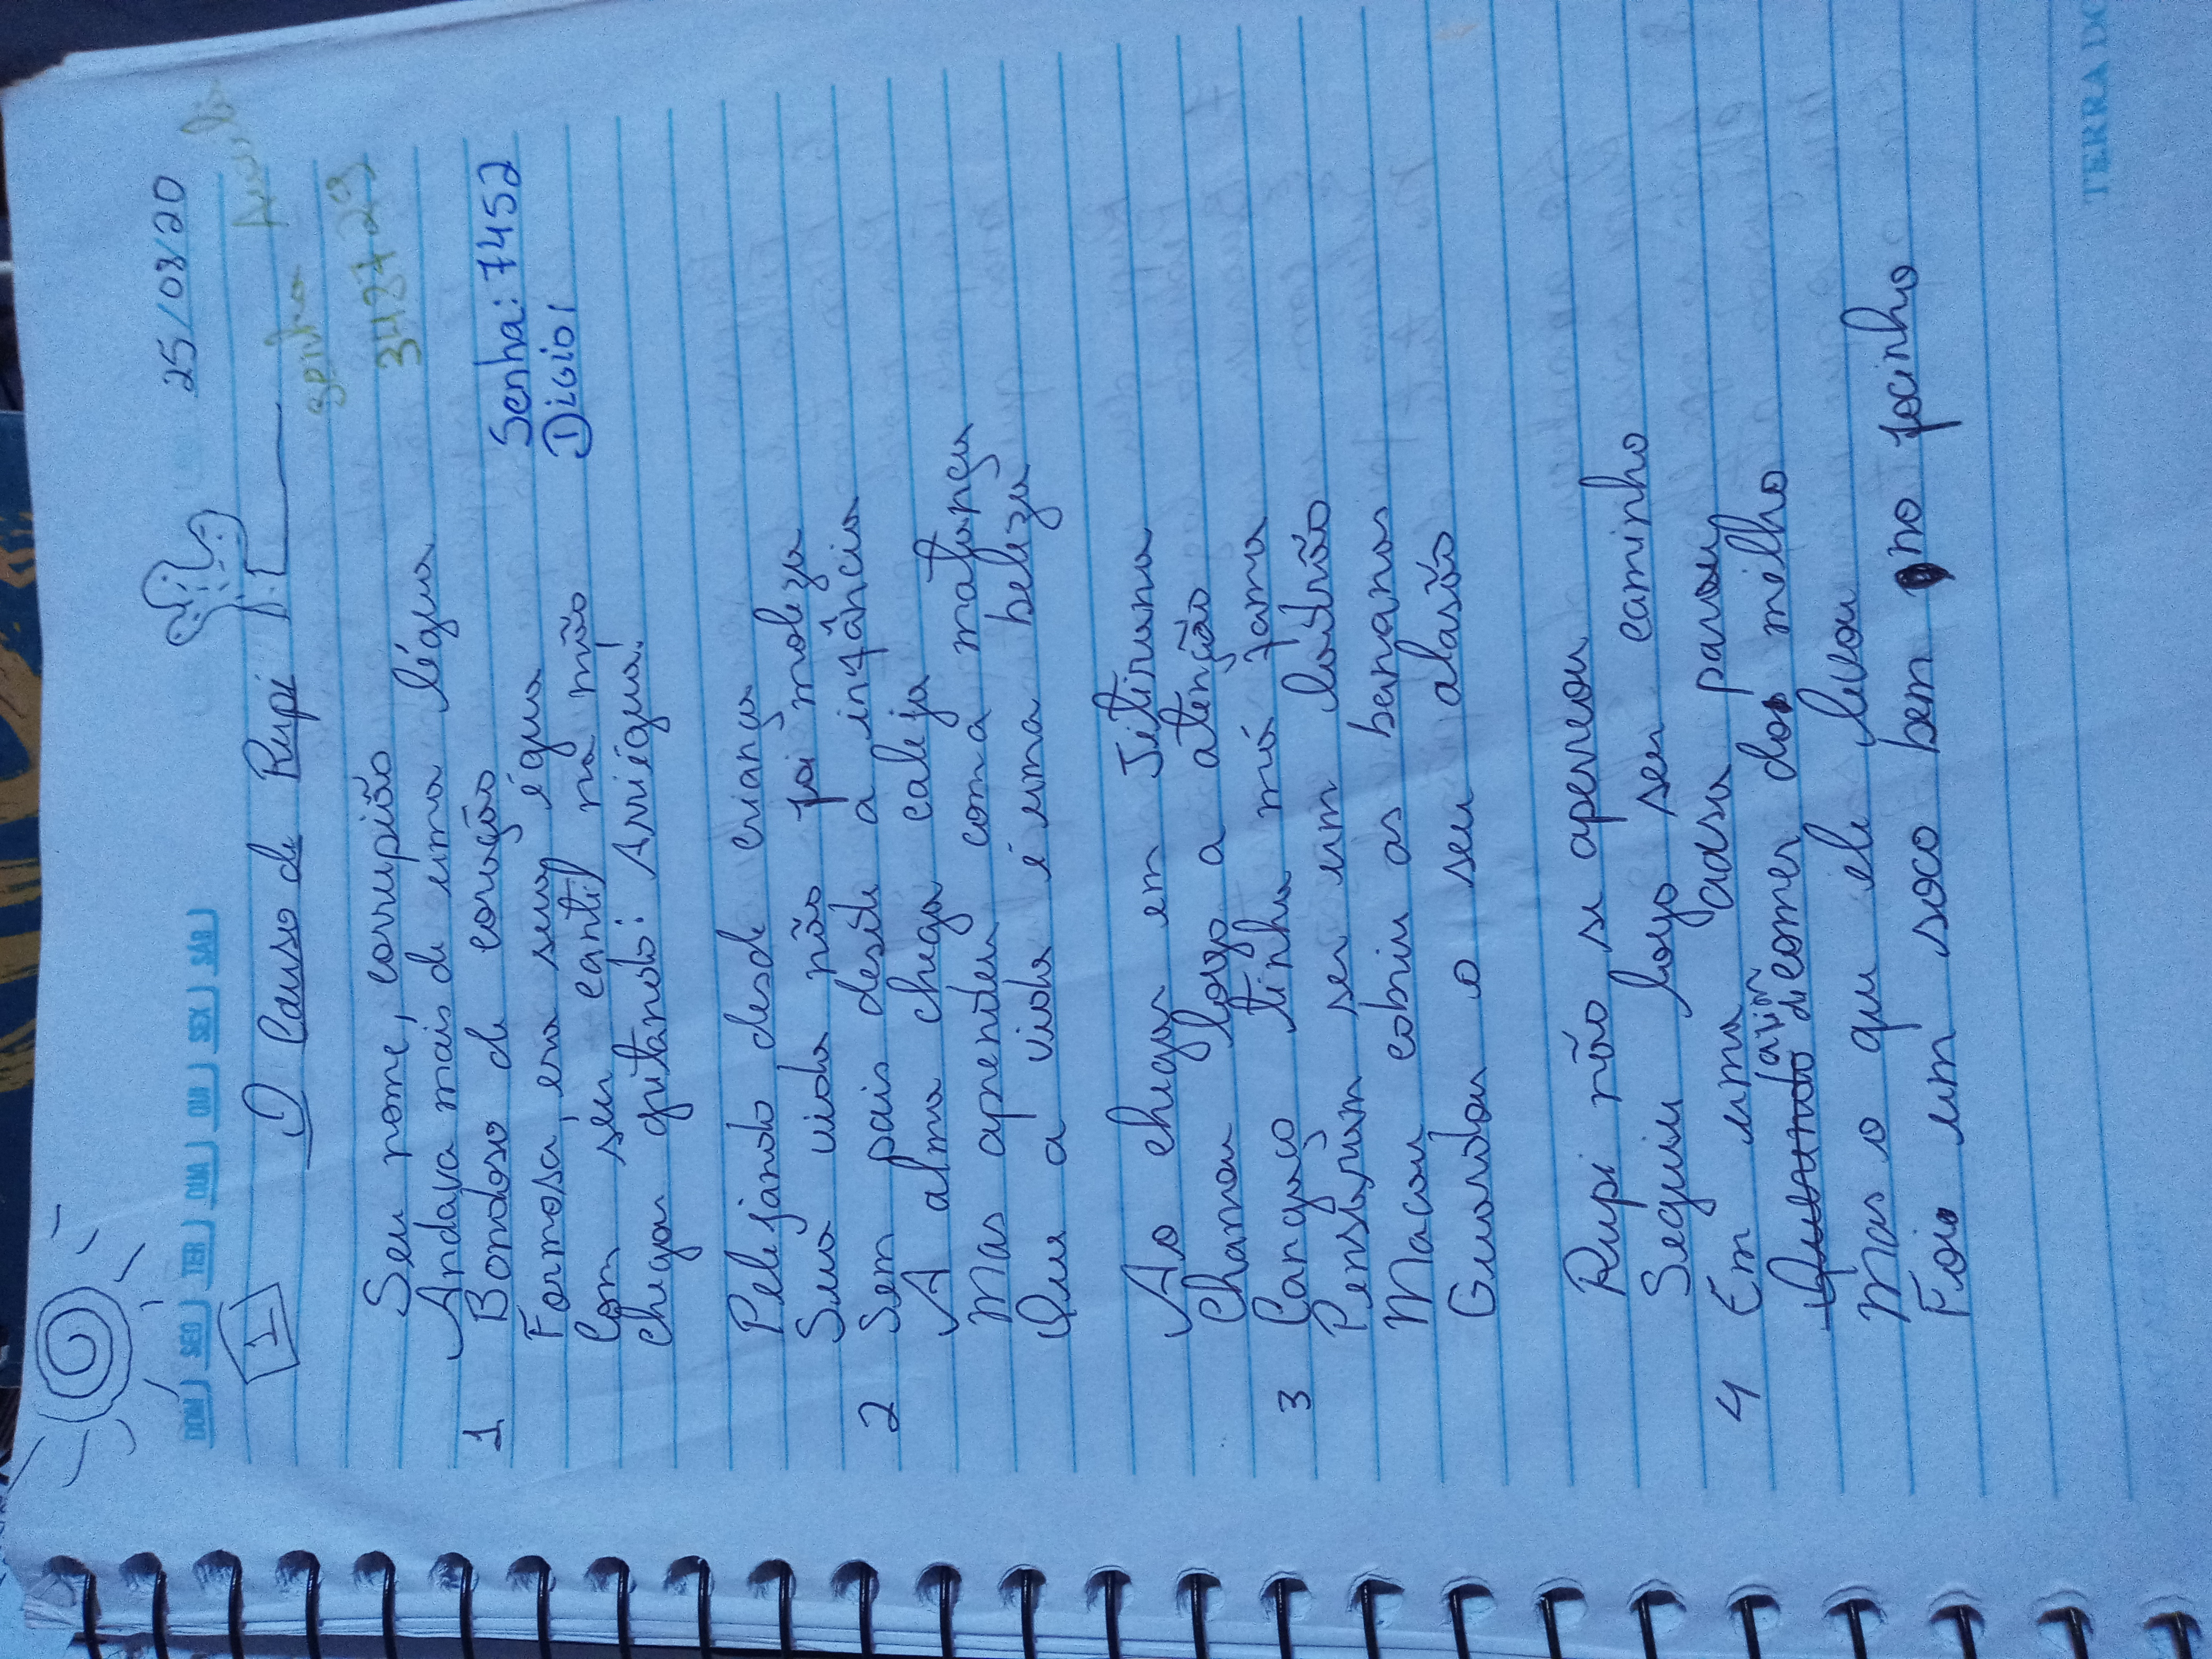 25/08/20
DOM SEG TER QUA QUI SEX SAB
1
O Causo de Rupi
34 27 23
Seu nome, corrupião
Andava mais de uma légua
1 Bondoso de coração
Senha: 7452
Formosa, era sua égua
Digio1
Com seu cantil na mão
Chegou gritando: Arriégua!
Pelejando desde criança
Sua vida não foi moleza
2 Sem pais desde a infância
A alma chega caleja
Mas aprendeu com a matança
Que a vida é uma beleza
Ao chegar em Jitirana
Chamou logo a atenção
3 Cangaço tinha má fama
Pensaram ser um ladrão
Macou cobriu as bananas
Guardou o seu alasão
Rupi não se aperreou
Seguiu logo seu caminho
4 Em uma casa parou
Quando comer do milho
Mas o que ele levou
Foi um soco bem no focinho
TERRA DO